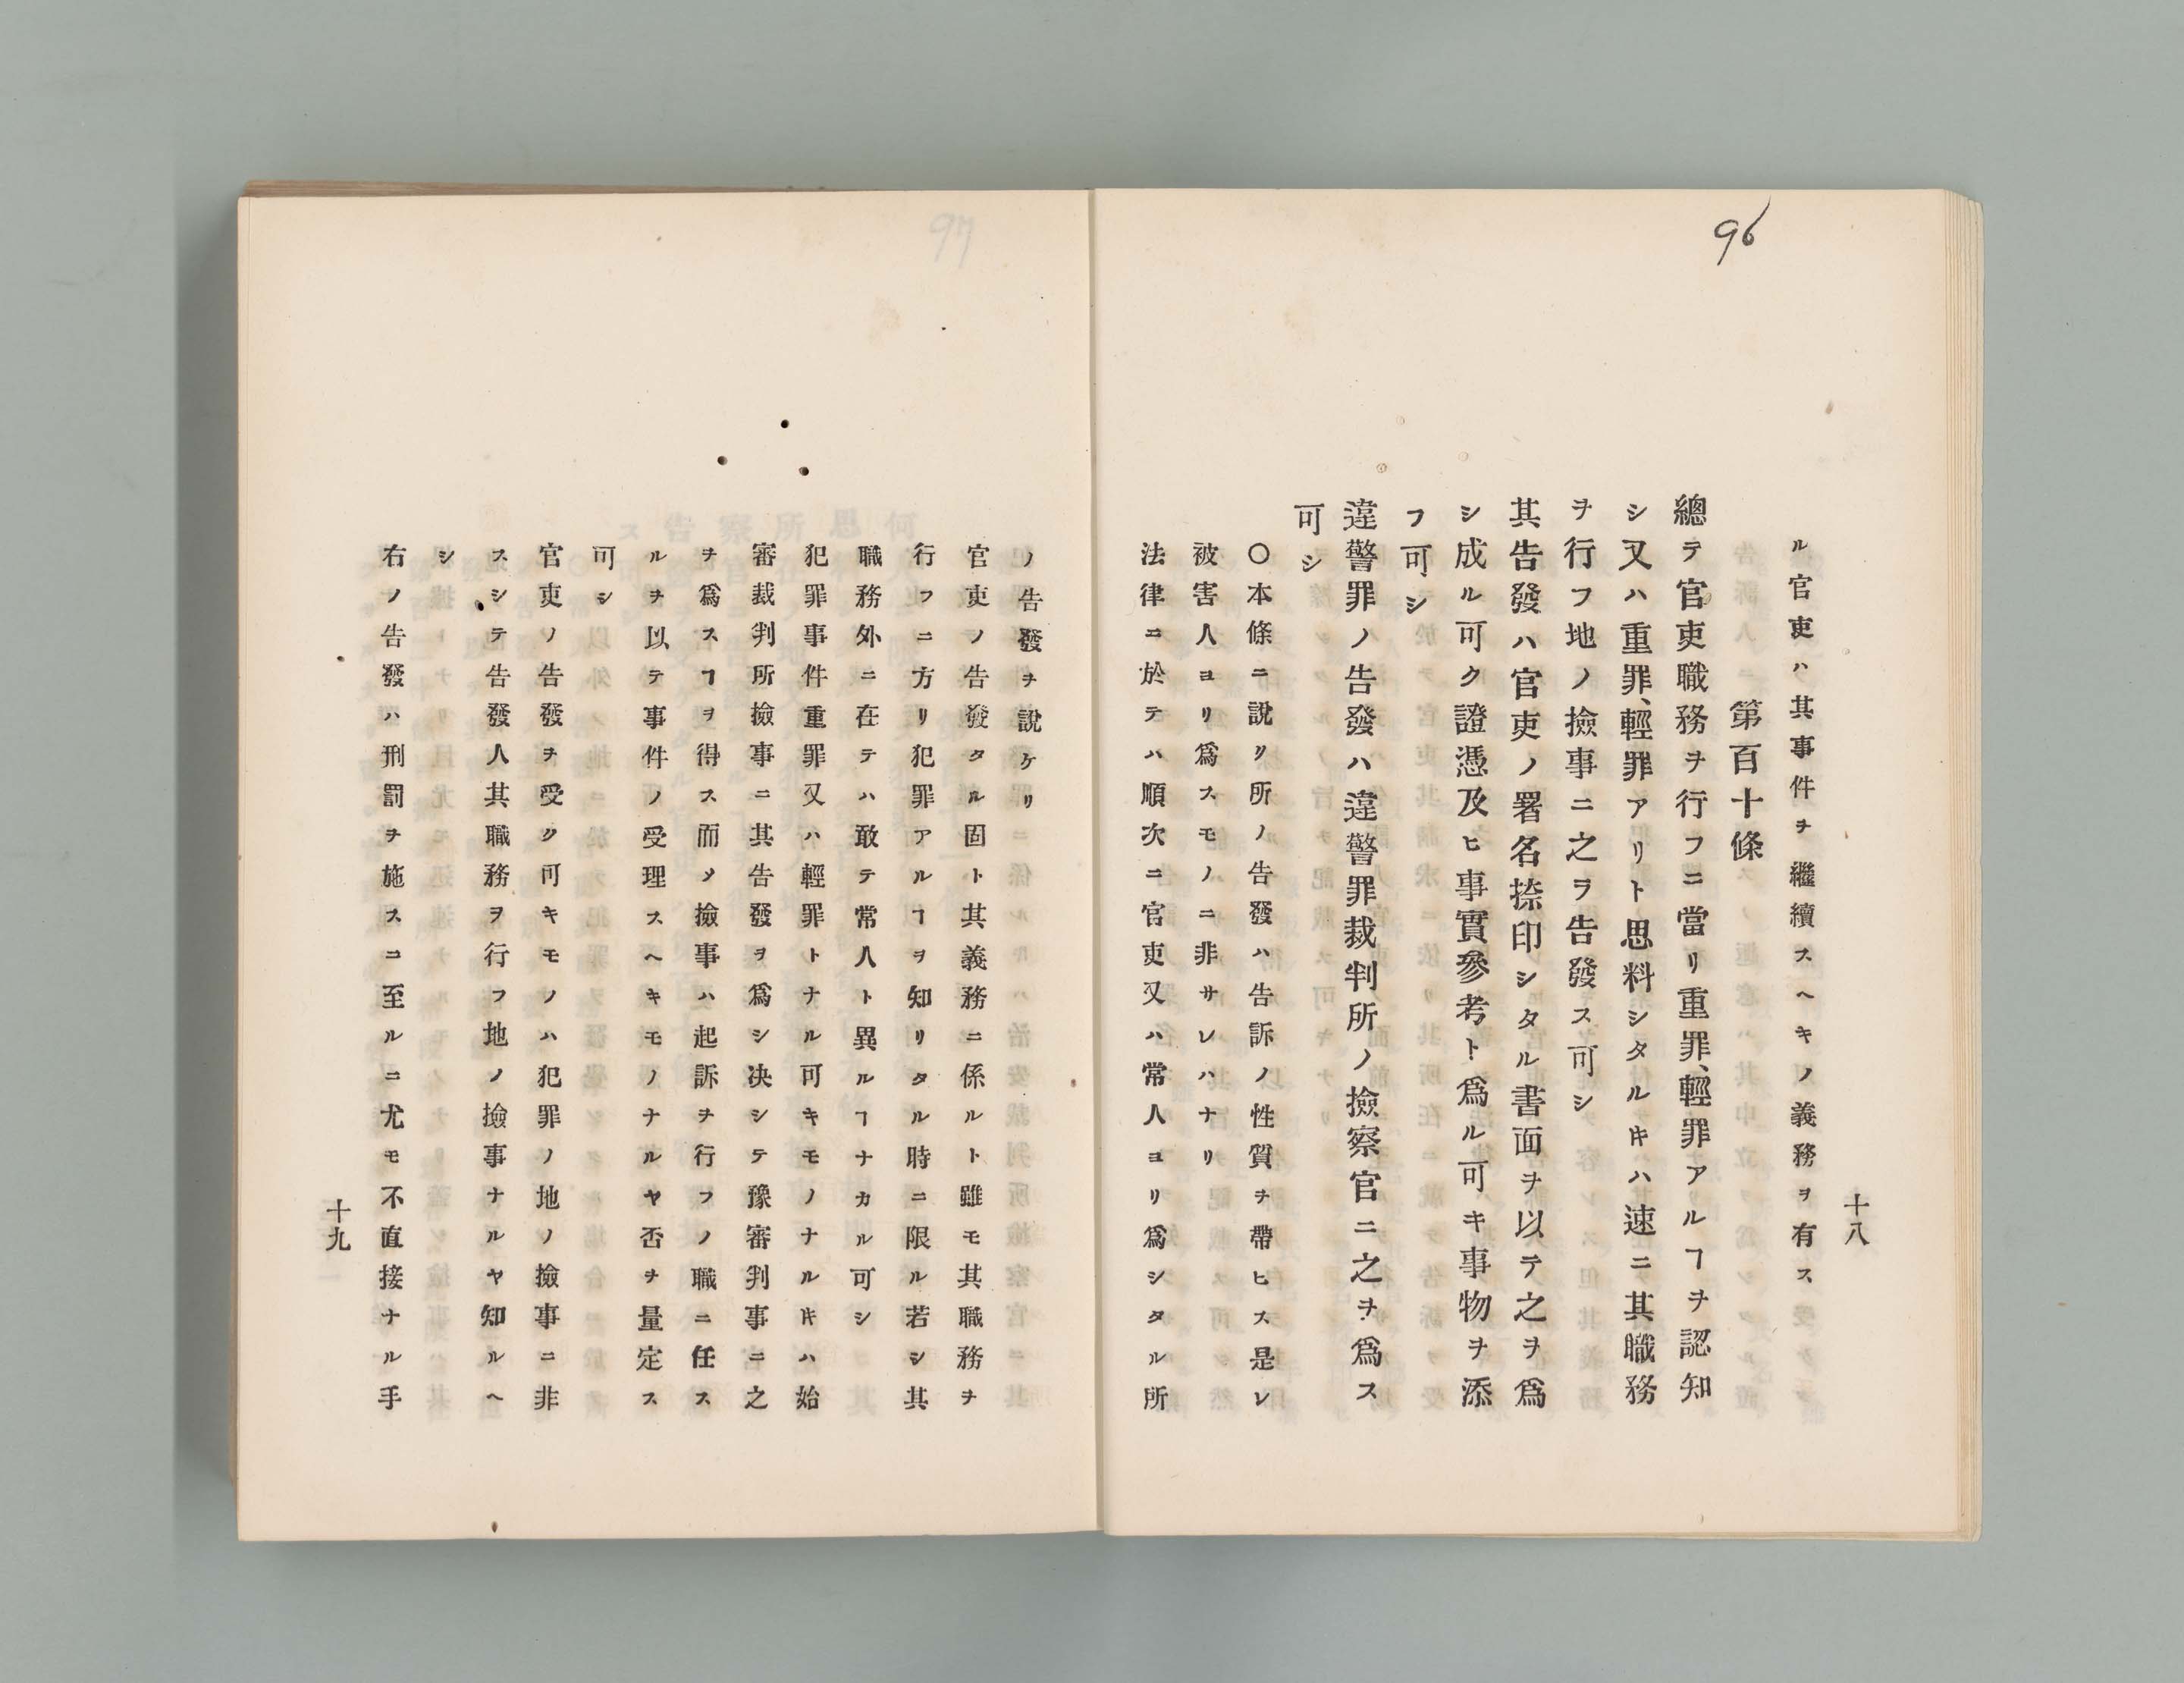 96
十八
ル官吏ハ其事件ヲ繼續スヘキノ義務ヲ有ス
第百十條
總テ官吏職務ヲ行フニ當リ重罪、輕罪アルヿヲ認知
シ又ハ重罪、輕罪アリト思料シタルキハ速ニ其職務
ヲ行フ地ノ撿事ニ之ヲ告發ス可シ
其告發ハ官吏ノ署名捺印シタル書面ヲ以テ之ヲ爲
シ成ル可ク證憑及ヒ事實參考ト爲ル可キ事物ヲ添
フ可シ
違警罪ノ告發ハ違警罪裁判所ノ撿察官ニ之ヲ爲ス
可シ
〇本條ニ說ク所ノ告發ハ告訴ノ性質ヲ帶ヒス是レ
被害人ヨリ爲スモノニ非サレハナリ
法律ニ於テハ順次ニ官吏又ハ常人ヨリ爲シタル所
97
ノ告發ヲ說ケリ
官吏ノ告發タル固ト其義務ニ係ルト雖モ其職務ヲ
行フニ方リ犯罪アルヿヲ知リタル時ニ限ル若シ其
職務外ニ在テハ敢テ常人ト異ルヿナカル可シ
犯罪事件重罪又ハ輕罪トナル可キモノナルキハ始
審裁判所撿事ニ其告發ヲ爲シ决シテ豫審判事ニ之
ヲ爲スヿヲ得ス而メ撿事ハ起訴ヲ行フノ職ニ任ス
ルヲ以テ事件ノ受理スヘキモノナルヤ否ヲ量定ス
可シ
官吏ノ告發ヲ受ク可キモノハ犯罪ノ地ノ撿事ニ非
スシテ告發人其職務ヲ行フ地ノ撿事ナルヤ知ルヘ
シ
右ノ告發ハ刑罰ヲ施スニ至ルニ尤モ不直接ナル手
十九